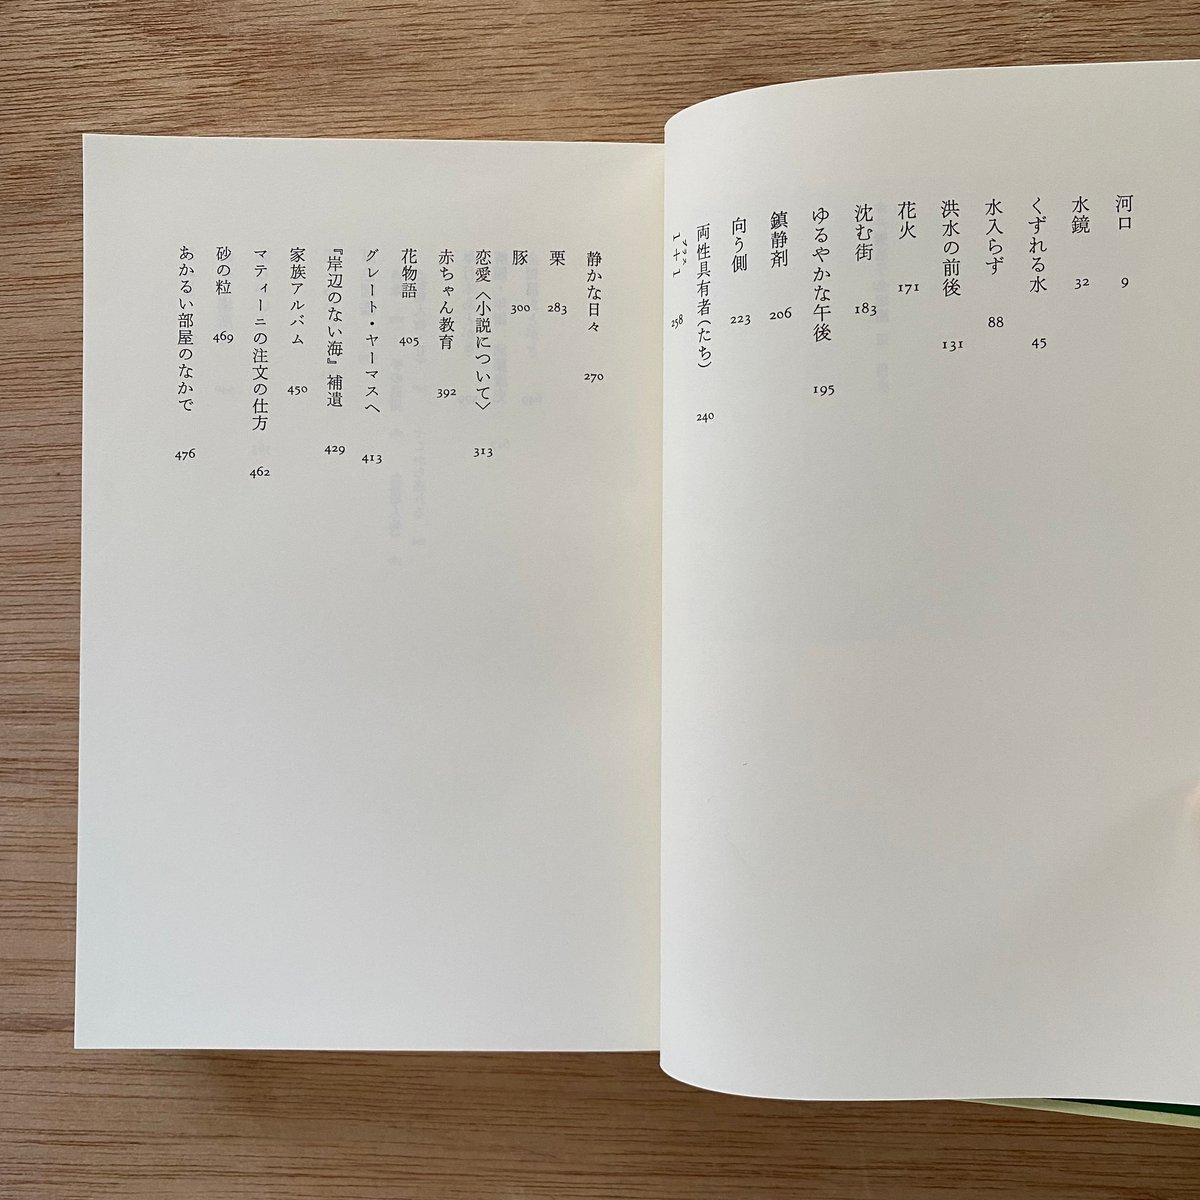 河口 9
水鏡 32
くずれる水 45
水入らず 88
洪水の前後 131
花火 171
沈む街 183
ゆるやかな午後 195
鎮静剤 206
向う側 223
両性具有者(たち) 240
プラス
1+1 258
静かな日々 270
栗 283
豚 300
恋愛〈小説について〉 313
赤ちゃん教育 392
花物語 405
グレート・ヤーマスへ 413
『岸辺のない海』補遺 429
家族アルバム 450
マティーニの注文の仕方 462
砂の粒 469
あかるい部屋のなかで 476